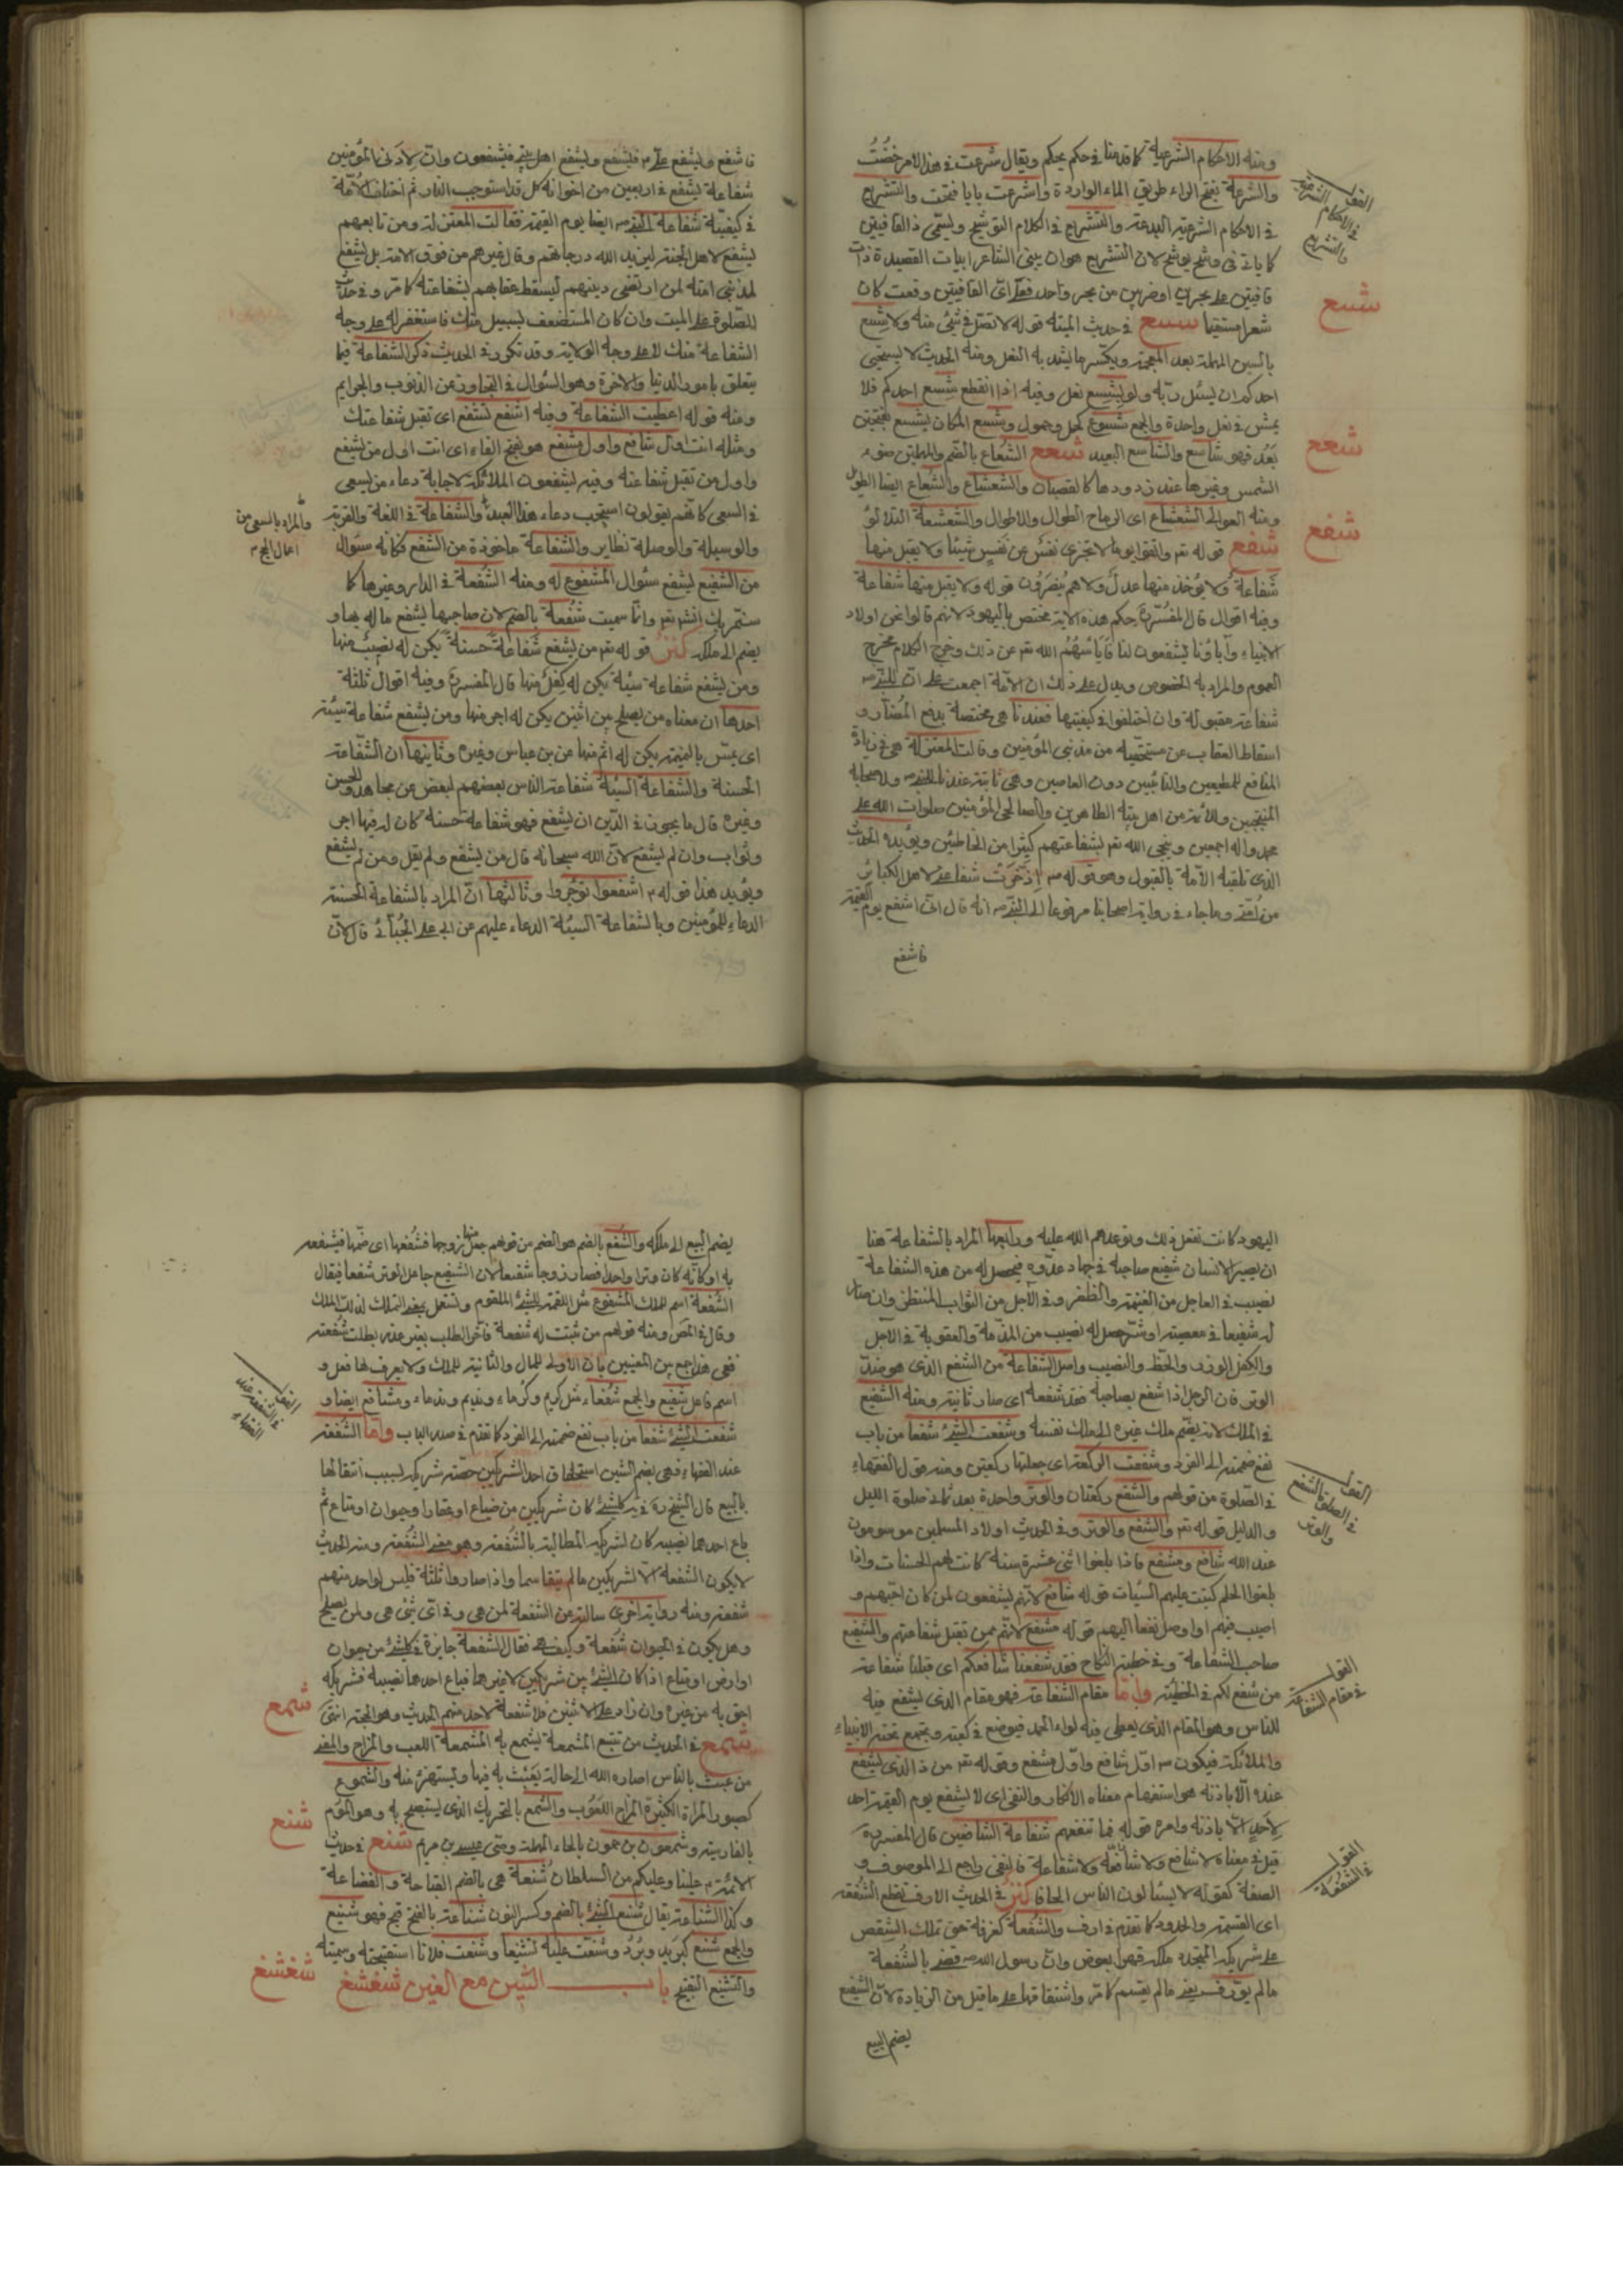 ومنه الاحكام الشرعية كما قدمنا في حكم يحكم ويقال شرعت في هذا الامر خضت
والشرعة بفتح الراء طريق الماء الواردة واشرعت بابا فتحت والتشريع
في الاحكام الشرعية البدعة والتشريع في الكلام التوشيح ويسمى ذا القافيتين
كما ياتي في وشح يوشح لان التشريع هو ان يبني الشاعر ابيات القصيدة ذات
قافيتين على بحرين او ضربين من بحر واحد فعلى اي القافيتين وقعت كان
شعرا مستقيما شسع في حديث الميتة قوله لا تصل في شئ منه ولا شسع
بالسين المهملة بعد المعجمة وبكسر ما يشد به النعل ومنه الحديث لا يستحيى
احدكم ان يسئل ربه ولو بشسع نعل وفيه اذا انقطع شسع احدكم فلا
يمش في نعل واحدة والجمع شسوع كحمل وحمول وشسع المكان يشسع بفتحتين
بعد فهو شاسع والشاسع البعيد شعع الشعاع بالضم والمهملتين ضوء
الشمس وغيرها عند ذرورها كالقضبان والشعشاع والشعاع ايضا الطويل
ومنه العوالي الشعشاع اي الرماح الطوال والاطوال والشعشعة التلالؤ
شفع قوله تع واتقوا يوما لا تجزي نفس عن نفس شيئا ولا يقبل منها
شفاعة ولا يؤخذ منها عدل ولا هم ينصرون قوله ولا يقبل منها شفاعة
وفيه اقوال قال المفسرون حكم هذه الاية مختص باليهود لانهم قالوا نحن اولاد
الانبياء وآباؤنا يشفعون لنا فايأسهم الله تع عن ذلك وخرج الكلام مخرج
العموم والمراد به الخصوص ويدل على ذلك ان الامة اجمعت على ان للنبي ص
شفاعة مقبولة وان اختلفوا في كيفيتها فعندنا هي مختصة بدفع المضار و
اسقاط العقاب عن مستحقيه من مذنبي المؤمنين وقالت المعتزلة هي في زيادة
المنافع للمطيعين والتائبين دون العاصين وهي ثابتة عندنا للنبي ص ولاصحابه
المنتجبين وللائمة من اهل بيته الطاهرين والصالحي المؤمنين صلوات الله على
محمد واله اجمعين وينجي الله تع بشفاعتهم كثيرا من الخاطئين ويؤيده الحديث
الذي تلقته الامة بالقبول وهو قوله ص ادخرت شفاعتي لاهل الكبائر
من امتي وما جاء في رواية اصحابنا مرفوعا الى النبي ص انه قال اني اشفع يوم القيمة
فاشفع
القول في الاحكام الشرعية والتشريع
شسع
شعع
شفع
فاشفع ويشفع علي ع فيشفع ويشفع اهل بيتي فيشفعون وان لادنى المؤمنين
شفاعة يشفع في اربعين من اخوانه كل قد استوجب النار ثم اختلف الامة
في كيفية شفاعة النبي ص ايضا يوم القيمة فقالت المعتزلة ومن تابعهم
يشفع لاهل الجنة ليزيد الله درجاتهم وقال غيرهم من فرق الامة بل يشفع
لمذنبي امته لمن ارتضى دينهم ليسقط عقابهم بشفاعته كما مر وفي حديث
الصلوة على الميت وان كان المستضعف بسبيل منك فاستغفر له على وجه
الشفاعة منك لا على وجه الولاية وقد تكرر في الحديث ذكر الشفاعة فيما
يتعلق بامور الدنيا والاخرة وهو السؤال في التجاوز عن الذنوب والجرايم
ومنه قوله اعطيت الشفاعة وفيه اشفع تشفع اي تقبل شفاعتك
ومثله انت اول شافع واول مشفع هو بفتح الفاء اي انت اول من يشفع
واول من تقبل شفاعته وفيه ليشفعون الملائكة لاجابة دعاء من يسعى
في السعي كانهم يقولون استجب دعاء هذا العبد والشفاعة في اللغة والقربة
والوسيلة والوصلة نظاير والشفاعة ماخوذة من الشفع فكانه سئوال
من الشفيع يشفع سئوال المشفوع له ومنه الشفعة في الدار وغيرها كما
ستمر بك انشا تع وانما سميت شفعة بالضم لان صاحبها يشفع ماله بها و
يضم الى ملكه كنز قوله تع من يشفع شفاعة حسنة يكن له نصيب منها
ومن يشفع شفاعة سيئة يكن له كفل منها قال المفسرون وفيه اقوال ثلثة
احدها ان معناه من يصلح بين اثنين يكن له اجر منها ومن يشفع شفاعة سيئة
اي يمش بالنميمة يكن له اثم منها عن بن عباس وغيره وثانيها ان الشفاعة
الحسنة والشفاعة السيئة شفاعة الناس بعضهم لبعض عن مجاهد والحسن
وغيره قال ما يجوز في الدين ان يشفع فهو شفاعة حسنة كان له فيها اجر
وثواب وان لم يشفع لان الله سبحانه قال من يشفع ولم يقل ومن لم يشفع
ويؤيد هذا قوله ع اشفعوا تؤجروا وثالثها ان المراد بالشفاعة الحسنة
الدعاء للمؤمنين وبالشفاعة السيئة الدعاء عليهم عن ابي علي الجبائي قال لان
والمراد بالسعي من
اعمال الحج م
اليهود كانت تفعل ذلك وتوعدهم الله عليه ورابعها المراد بالشفاعة هنا
ان يصير الانسان شفيع صاحبه في جهاد عدوه فيحصل له من هذه الشفاعة
نصيب في العاجل من الغنيمة والظفر وفي الآجل من الثواب المنتظر وان صار
له شفيعا في معصية او شر حصل له نصيب من المذمة والعقوبة في الآجل
والكفل الوزر والحظ والنصيب واصل الشفاعة من الشفع الذي هو ضد
الوتر فان الرجل اذا شفع بصاحبه فقد شفعه اي صار ثانيه ومنه الشفيع
في الملك لانه يضم ملك غيره الى ملك نفسه وشفعت الشئ شفعا من باب
نفع ضممته الى الفرد وشفعت الركعة اي جعلتها ركعتين ومنه قول الفقهاء
في الصلوة من قولهم والشفع ركعتان والوتر واحدة بعد ثماني صلوة الليل
والدليل قوله تع والشفع والوتر وفي الحديث اولاد المسلمين موسومون
عند الله شافع ومشفع فاذا بلغوا اثنى عشرة سنة كانت لهم الحسنات واذا
بلغوا الحلم كتبت عليهم السيات قوله شافع لانهم يشفعون لمن كان احبهم و
اصيب فيهم او اوصل نفعا اليهم قوله مشفع لانهم ممن تقبل شفاعتهم والشفيع
صاحب الشفاعة وفي خطبة النكاح فقد شفعنا شافعكم اي قبلنا شفاعة
من شفع لكم في الخطبة واما مقام الشفاعة فهو مقام الذي يشفع فيه
للناس وهو المقام الذي يعطى فيه لواء الحمد فيوضع في كفه ويجتمع تحته الانبياء
والملائكة فيكون ص اول شافع واول مشفع وقوله تع من ذا الذي يشفع
عنده الا باذنه هو استفهام معناه الانكار والنفي اي لا يشفع يوم القيمة احد
لاحد الا باذنه وامره قوله فما تنفعهم شفاعة الشافعين قال المفسرون
قيل في معناه لا شافع ولا شافعة ولا شفاعة فالنفي راجع الى الموصوف و
الصفة كقوله لا يسئلون الناس الحافا كنز في الحديث الارف تقطع الشفعة
اي القسمة والحدود كما تقدم في ارف والشفعة كغرفة حق تملك الشقص
على شريكه المتجدد ملكه قهرا بعوض وان رسول الله ص قضى بالشفعة
ما لم يورف يعني ما لم يقسم كما مر واشتقاقها على ما قيل من الزيادة لان الشفيع
يضم المبيع
القول في الصلوة الشفع والوتر
القول في مقام الشفاعة
القول في الشفعة
يضم المبيع الى ملكه والشفع بالضم هو الضم من قولهم جعل منها زوجا فشفعها اي ضمها فيشفعه
به او كانه كان وترا واحدا فصار زوجا شفعا لان الشفيع جاعل الوتر شفعا فيقال
الشفعة اسم للملك المشفوع مثل اللقمة للشئ الملقوم وتستعمل بمعنى التملك لذلك الملك
وقال في المص ومنه قولهم من ثبتت له شفعة فاخر الطلب بغير عذر بطلت شفعته
ففي هذا جمع بين المعنيين بان الاولى للمال والثانية للملك ولا يعرف لها فعل و
اسم فاعل شفيع والجمع شفعاء مثل كريم وكرماء ونديم وندماء وشافع ايضا و
شفعت الشئ شفعا من باب نفع ضممته الى الفرد كما تقدم في صدر الباب واما الشفعة
عند الفقهاء فهي بضم الشين استحقاق احد الشريكين حصة شريكه بسبب انتقالها
بالبيع قال الشيخ ره في كل شئ كان شريكين من ضياع او عقار او حيوان او متاع ثم
باع احدهما نصيبه كان لشريكه المطالبة بالشفعة وهو معنى الشفعة ومنه الحديث
لا يكون الشفعة الا لشريكين ما لم يتقاسما واذا صاروا ثلثة فليس لواحد منهم
شفعة ومنه رواية اخرى سالته عن الشفعة لمن هي وفي اي شئ هي ولمن يصلح
وهل يكون في الحيوان شفعة وكيف هي فقال الشفعة جايزة في كل شئ من حيوان
او ارض او متاع اذا كان الشئ بين شريكين لا غيرهما فباع احدهما نصيبه فشريكه
احق به من غيره وان زاد على الاثنين فلا شفعة لاحد منهم الحديث وهو الحجة انتهى
شمع في الحديث من تتبع المشمعة يشمع به المشمعة اللعب والمزاح والمعنى
من عبث بالناس اصاره الله الى حالة يعبث به فيها ويستهزئ منه والشموع
كصبور المراة الكثيرة المزاح اللعوب والشمع بالتحريك الذي يستصبح به وهو الموم
بالفارسية وشمعون بن حمون بالحاء المهملة وصي عيسى بن مريم شنع في حديث
الائمة ع علينا وعليكم من السلطان شنعة هي بالضم القباحة والفضاعة
وكذا الشناعة يقال شنع الشئ بالضم وكسر النون شناعة بالفتح قبح فهو شنيع
والجمع شنع كبريد وبرد وشنعت عليه تشنيعا وشنعت فلانا استقبحته وسميته
والتشنيع التقبيح باب الشين مع الغين شغشغ
القول في الشفعة عند الفقهاء
شمع
شنع
شغشغ